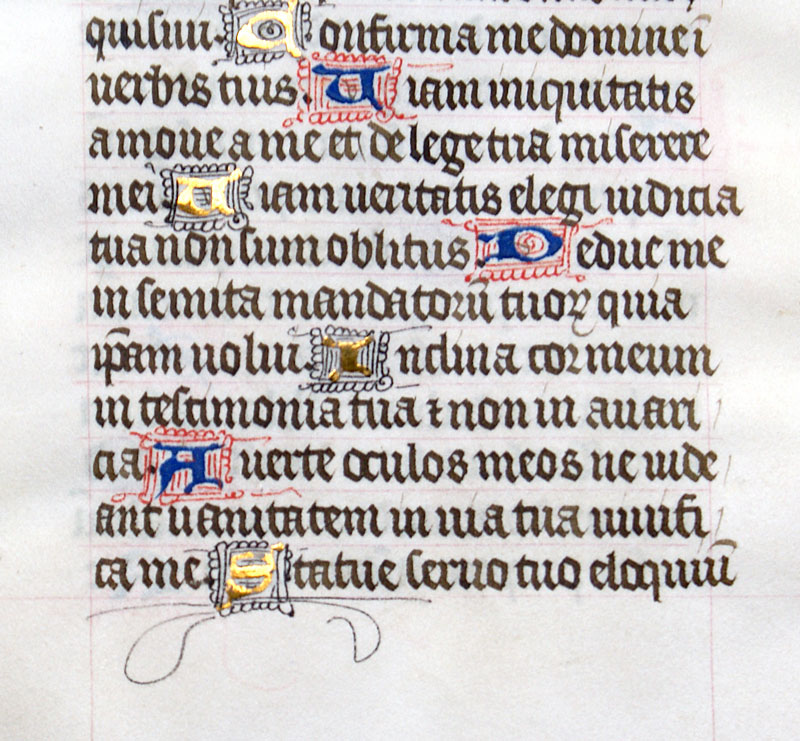 quisiui. Confirma me domine ī
uerbis tuis. Uiam iniquitatis
amoue a me et de lege tua miserere
mei. Uiam ueritatis elegi iudicia
tua non sum oblitus. Deduc me
in semita mandatorū tuoꝝ quia
ip̄am uolui. Inclina cor meum
in testimonia tua ⁊ non in auari
cia. Auerte oculos meos ne uide
ant uanitatem in uia tua uiuifi
ca me. Statue seruo tuo eloquiū